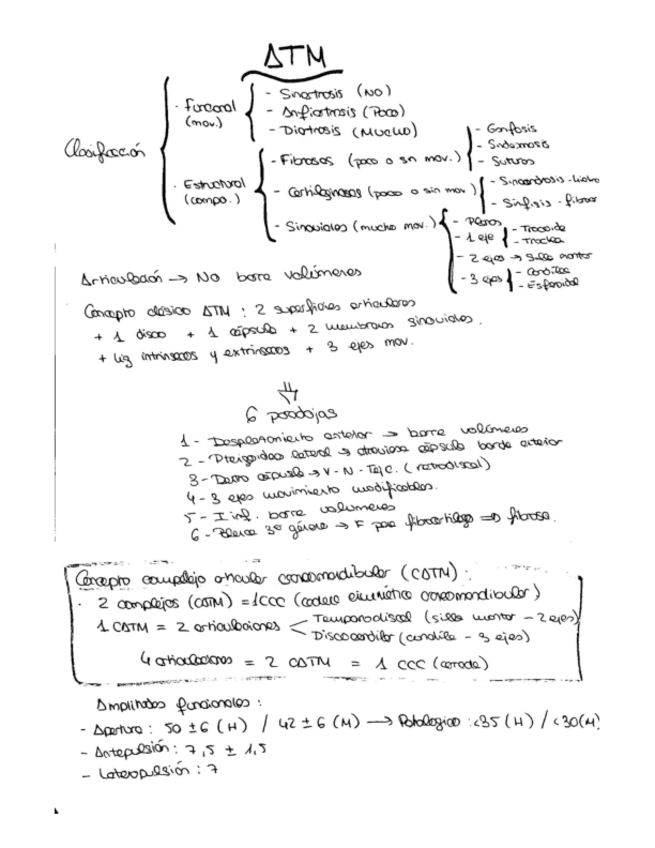 ATM
Clasificación
· Funcional (mov.)
- Sinartrosis (NO)
- Anfiartrosis (Poco)
- Diartrosis (MUCHO)
· Estructural (compo.)
- Fibrosas (poco o sin mov.)
- Gonfosis
- Sindesmosis
- Suturas
- Cartilaginosas (poco o sin mov)
- Sincondrosis - hialino
- Sínfisis - fibroso
- Sinoviales (mucho mov.)
- Planas
- 1 eje
- Trocoide
- Troclea
- 2 ejes → Silla montar
- 3 ejes
- Condílea
- Esferoidal
Articulación → No borra volúmenes
Concepto clásico ATM : 2 superficies articulares
+ 1 disco + 1 cápsula + 2 membranas sinoviales.
+ lig intrínsecos y extrínsecos + 3 ejes mov.
6 paradojas
1 - Desplazamiento anterior → borra volúmenes
2 - Pterigoideo lateral → atraviesa cápsula borde anterior
3 - Dentro cápsula → V - N - Teje. (retrodiscal)
4 - 3 ejes movimiento modificables.
5 - I inf. borra volumenes
6 - Palanca 3º género → F para fibrocartílago => fibrosa.
Concepto complejo articular craneomandibular (CATM) :
· 2 complejos (CATM) = 1CCC (cadena cinemática craneomandibular)
1 CATM = 2 articulaciones
Temporodiscal (silla montar - 2 ejes)
Discocondilar (condílea - 3 ejes)
4 articulaciones = 2 CATM = 1 CCC (cerrada)
Amplitudes funcionales :
- Apertura : 50 ± 6 (H) / 42 ± 6 (M) → Patologico : <35 (H) / <30(M)
- Antepulsión : 7,5 ± 1,5
- Lateropulsión : 7